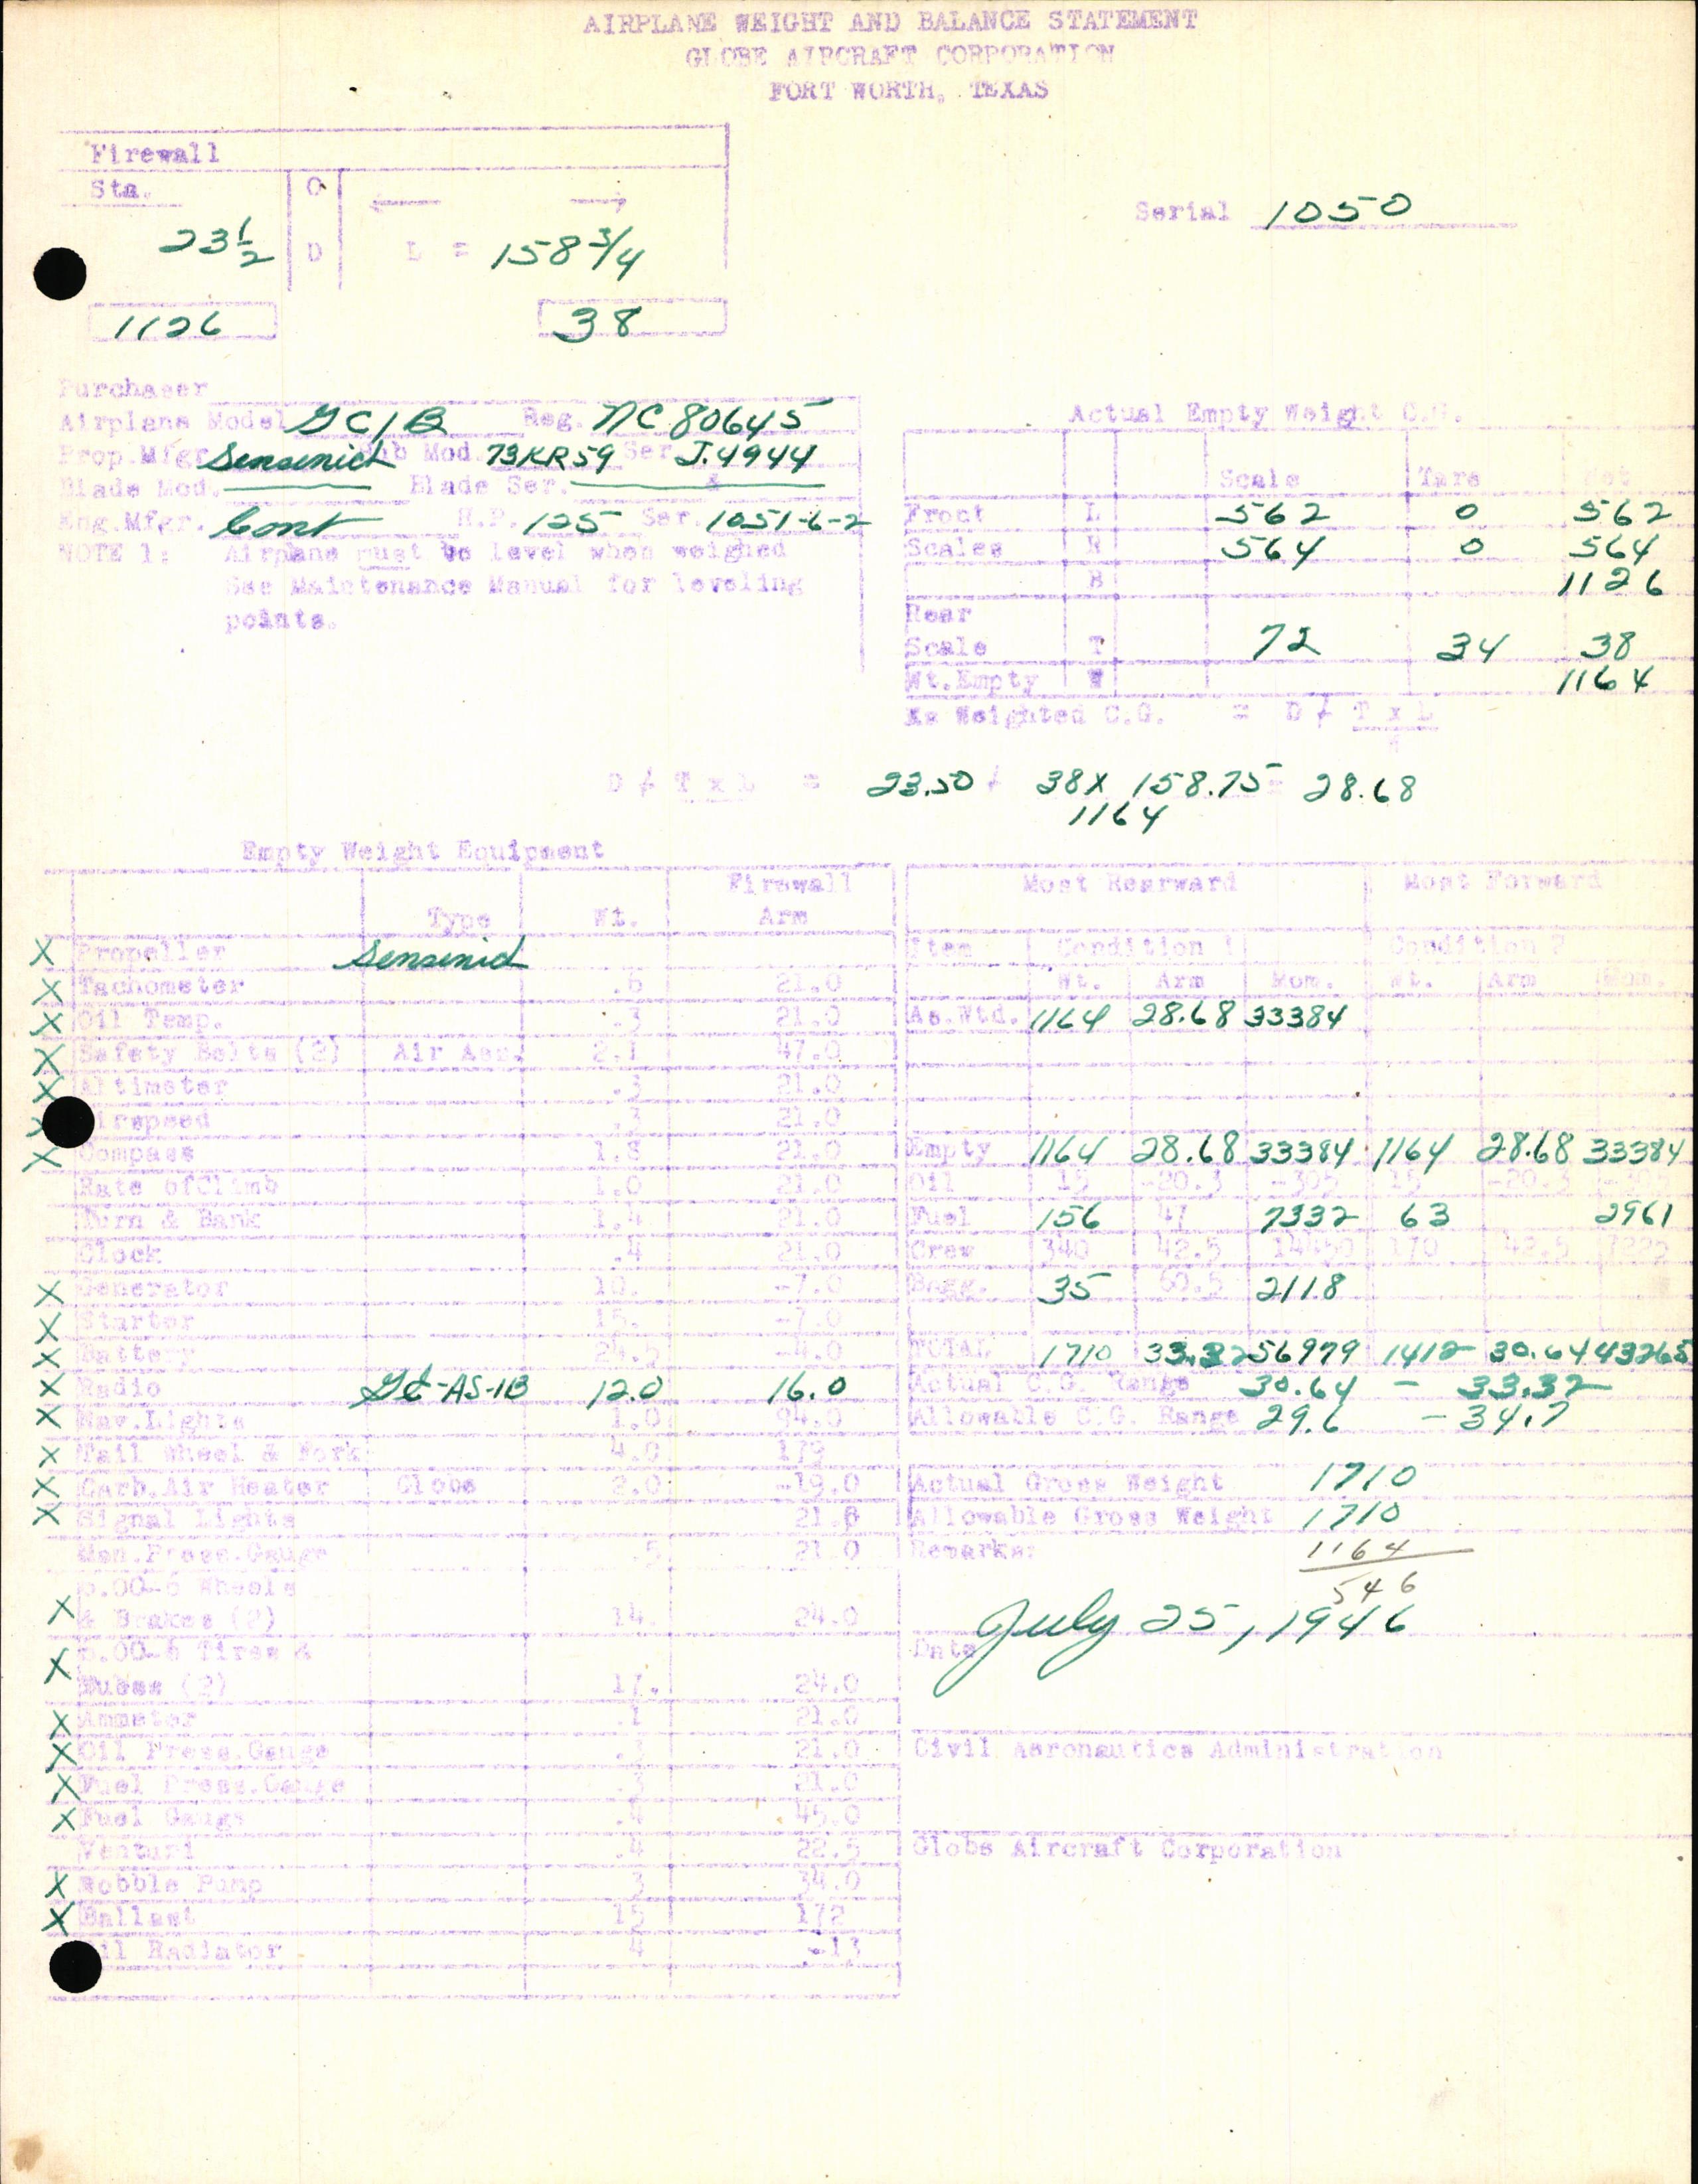 AIRPLANE WEIGHT AND BALANCE STATEMENT
GLOBE AIRCRAFT CORPORATION
FORT WORTH, TEXAS
Firewall
Sta. C
23 1/2 D L = 158 3/4
Serial 1050
1126 38
Purchaser
Airplane Model GC1B Reg. NC 80645
Prop.Mfgr. Sensenich Hub Mod. 73KR59 Ser. J.4944
Blade Mod. Blade Ser. &
Eng.Mfgr. Cont H.P. 125 Ser. 1051-6-2
NOTE 1: Airplane must be level when weighed
See Maintenance Manual for leveling
points.
Actual Empty Weight C.G.
Scale Tare Net
Front L 562 0 562
Scales R 564 0 564
B 1126
Rear
Scale T 72 34 38
Wt.Empty W 1164
As Weighted C.G. = D + T x L
D + T x L = 23.50 + 38 x 158.75 = 28.68
1164
Empty Weight Equipment
Type Wt. Firewall Arm
X Propeller Sensenich
X Tachometer .6 21.0
X Oil Temp. .3 21.0
X Safety Belts (2) Air Ass. 2.1 47.0
X Altimeter .3 21.0
X Airspeed .3 21.0
X Compass 1.8 21.0
Rate of Climb 1.0 21.0
Turn & Bank 1.4 21.0
Clock .4 21.0
X Generator 10. -7.0
X Starter 15. -7.0
X Battery 24.5 -4.0
X Radio GE-AS-1B 12.0 16.0
X Nav.Lights 1.0 94.0
X Tail Wheel & Fork 4.0 179
X Carb.Air Heater Globe 2.0 -19.0
X Signal Lights 21.0
Man.Press.Gauge .5 21.0
5.00-6 Wheels
X & Brakes (2) 14. 24.0
6.00-6 Tires &
X Tubes (2) 17. 24.0
X Ammeter .1 21.0
X Oil Press.Gauge .3 21.0
X Fuel Press.Gauge .3 21.0
X Fuel Gauge .4 45.0
Venturi .4 22.5
X Wobble Pump 3 34.0
X Ballast 15 172
Oil Radiator 4 -13
Most Rearward Most Forward
Item Condition 1 Condition 2
Wt. Arm Mom. Wt. Arm Mom.
As.Wtd. 1164 28.68 33384
Empty 1164 28.68 33384 1164 28.68 33384
Oil 15 -20.3 -305 15 -20.3 -305
Fuel 156 47 7332 63 2961
Crew 340 42.5 14450 170 42.5 7225
Bagg. 35 60.5 2118
TOTAL 1710 33.32 56979 1412 30.64 43265
Actual C.G. Range 30.64 - 33.32
Allowable C.G. Range 29.6 - 34.7
Actual Gross Weight 1710
Allowable Gross Weight 1710
Remarks: 1164
546
Date July 25, 1946
Civil Aeronautics Administration
Globe Aircraft Corporation